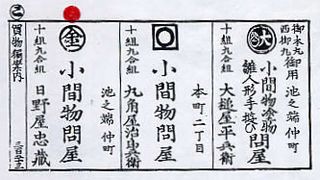 御本丸
西御丸
御用
池之端仲町
大
小間物塗物
雛人形手遊び
問屋
十組九合組
大槌屋平兵衛
本町二丁目
小間物問屋
十組九合組
九角屋治兵衛
金
池之端
仲町
小間物問屋
十組九合組
日野屋忠蔵
買物独案内